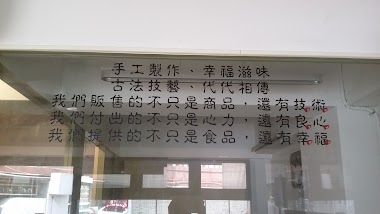 手工製作、幸福滋味
古法技藝、代代相傳
我們販售的不只是商品，還有技術
我們付出的不只是心力，還有良心
我們提供的不只是食品，還有幸福